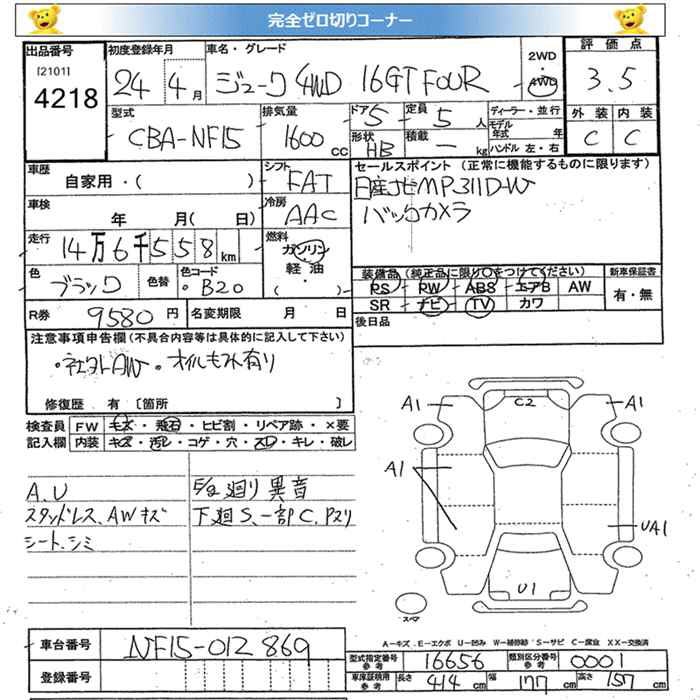 完全ゼロ切りコーナー
出品番号 初度登録年月 車名・グレード 2WD 評価点
[2101] 4218 24年 4月 ジューク 4WD 16GT FOUR ・ 4WD 3.5
型式 排気量 ドア 5 定員 5人 ディーラー・並行 外装 内装
CBA-NF15 1600cc 形状 HB 積載 ー kg モデル年式 年 C C
ハンドル 左・右
車歴 シフト セールスポイント (正常に機能するものに限ります)
自家用・( ) FAT 日産ナビMP311D-W
車検 冷房 バックカメラ
年 月( 日) AAC
走行 燃料
14万6千558km ガソリン
軽油・
( )
色 色替 色コード 装備品(純正品に限り○をつけてください) 新車保証書
ブラック ・B20 PS PW ABS エアB AW 有・無
SR ナビ TV カワ
R券 9580円 名変期限 月 日 後日品
注意事項申告欄(不具合内容等は具体的に記入して下さい)
・社外AW ・オイルもれ有り
修復歴 有 [箇所 ]
検査員 FW キズ・飛石・ヒビ割・リペア跡・×要
記入欄 内装 キズ・汚レ・コゲ・穴・スレ・キレ・破レ
A.U
スタッドレス、AWキズ
シート、シミ
E/G廻り異音
下廻S、一部C、Pスリ
A1 C2 A1
A1
UA1
U1
スペア
A-キズ E-エクボ U-凹み W-補修跡 S-サビ C-腐食 XX-交換済
車台番号 NF15-012869
登録番号
型式指定番号 参考 16656 類別区分番号 参考 0001
車庫証明用 参考 長さ 414cm 幅 177cm 高さ 157cm